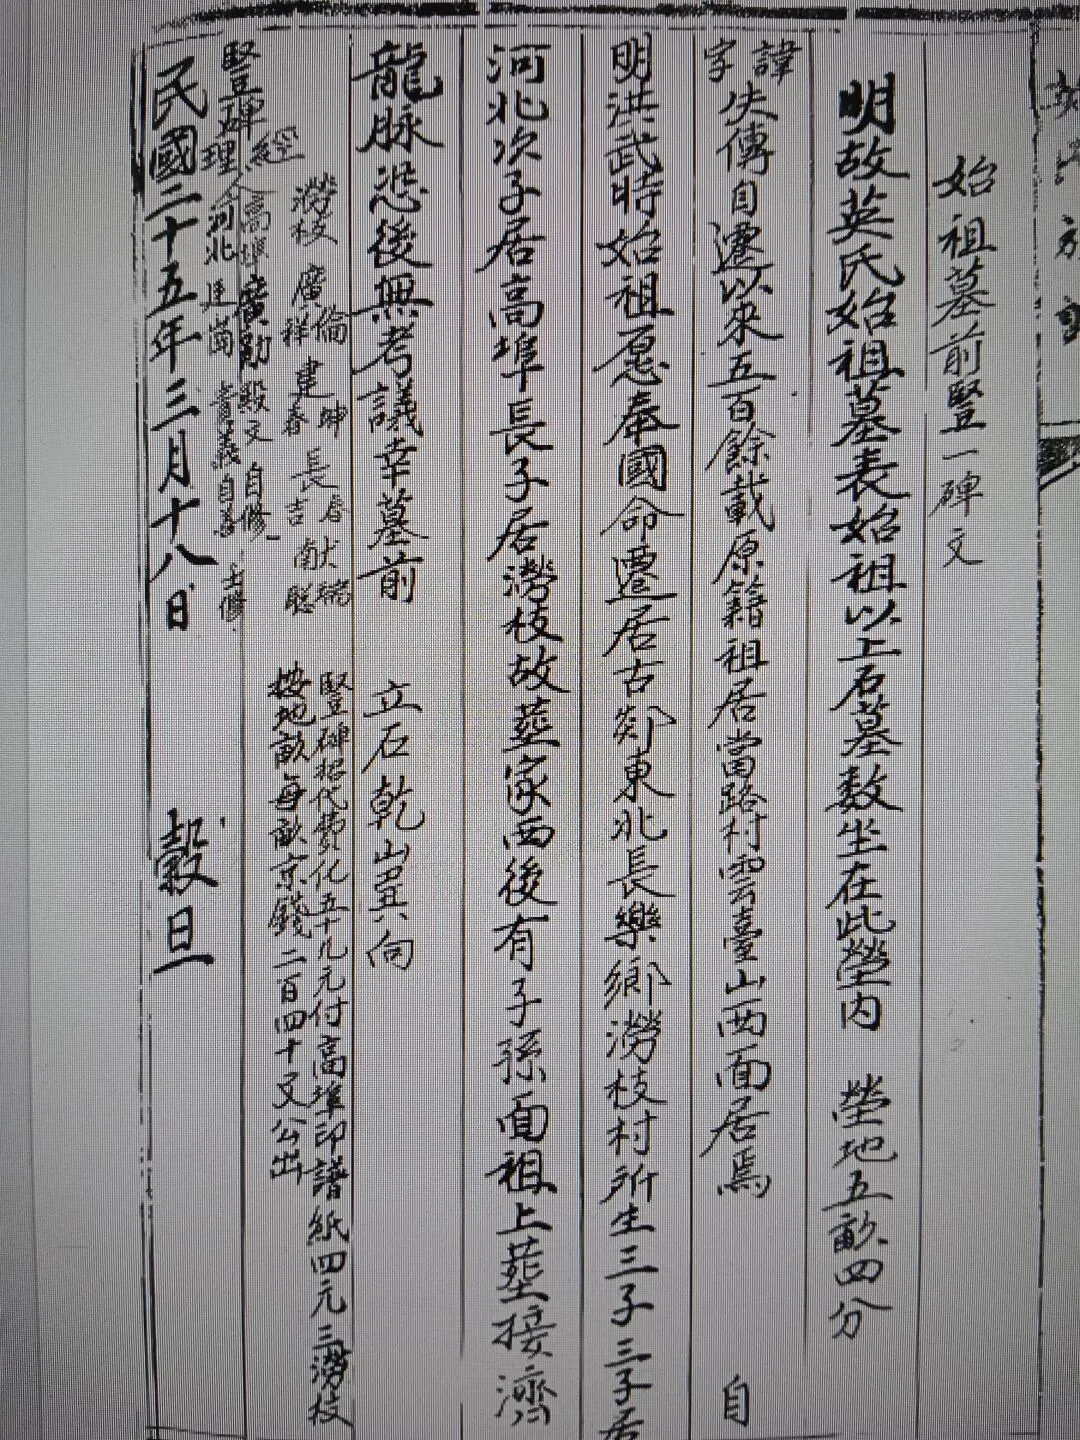 始祖墓前豎一碑文
明故英氏始祖墓表始祖以上石墓数坐在此塋内 塋地五畝四分
諱字失傳自遷以來五百餘載原籍祖居當路村雲臺山西面居焉 自
明洪武時始祖愿奉國命遷居古郯東北長樂鄉澇枝村所生三子三子居
河北次子居高埠長子居澇枝故塟家西後有子孫面祖上塟接濟
龍脉恐後無考議幸墓前 立石乾山巽向
豎碑招代費化五十九元付高埠印譜紙四元三澇枝
按地畝每畝京錢二百四十文公出
澇枝 廣倫 廣祥 建坤 建春 長春 長吉 献瑞 献聪
豎碑經理人 高埠 廣勛 殿文 自修
河北 建崗 貴義 自善 士修
民國二十五年三月十八日 榖旦